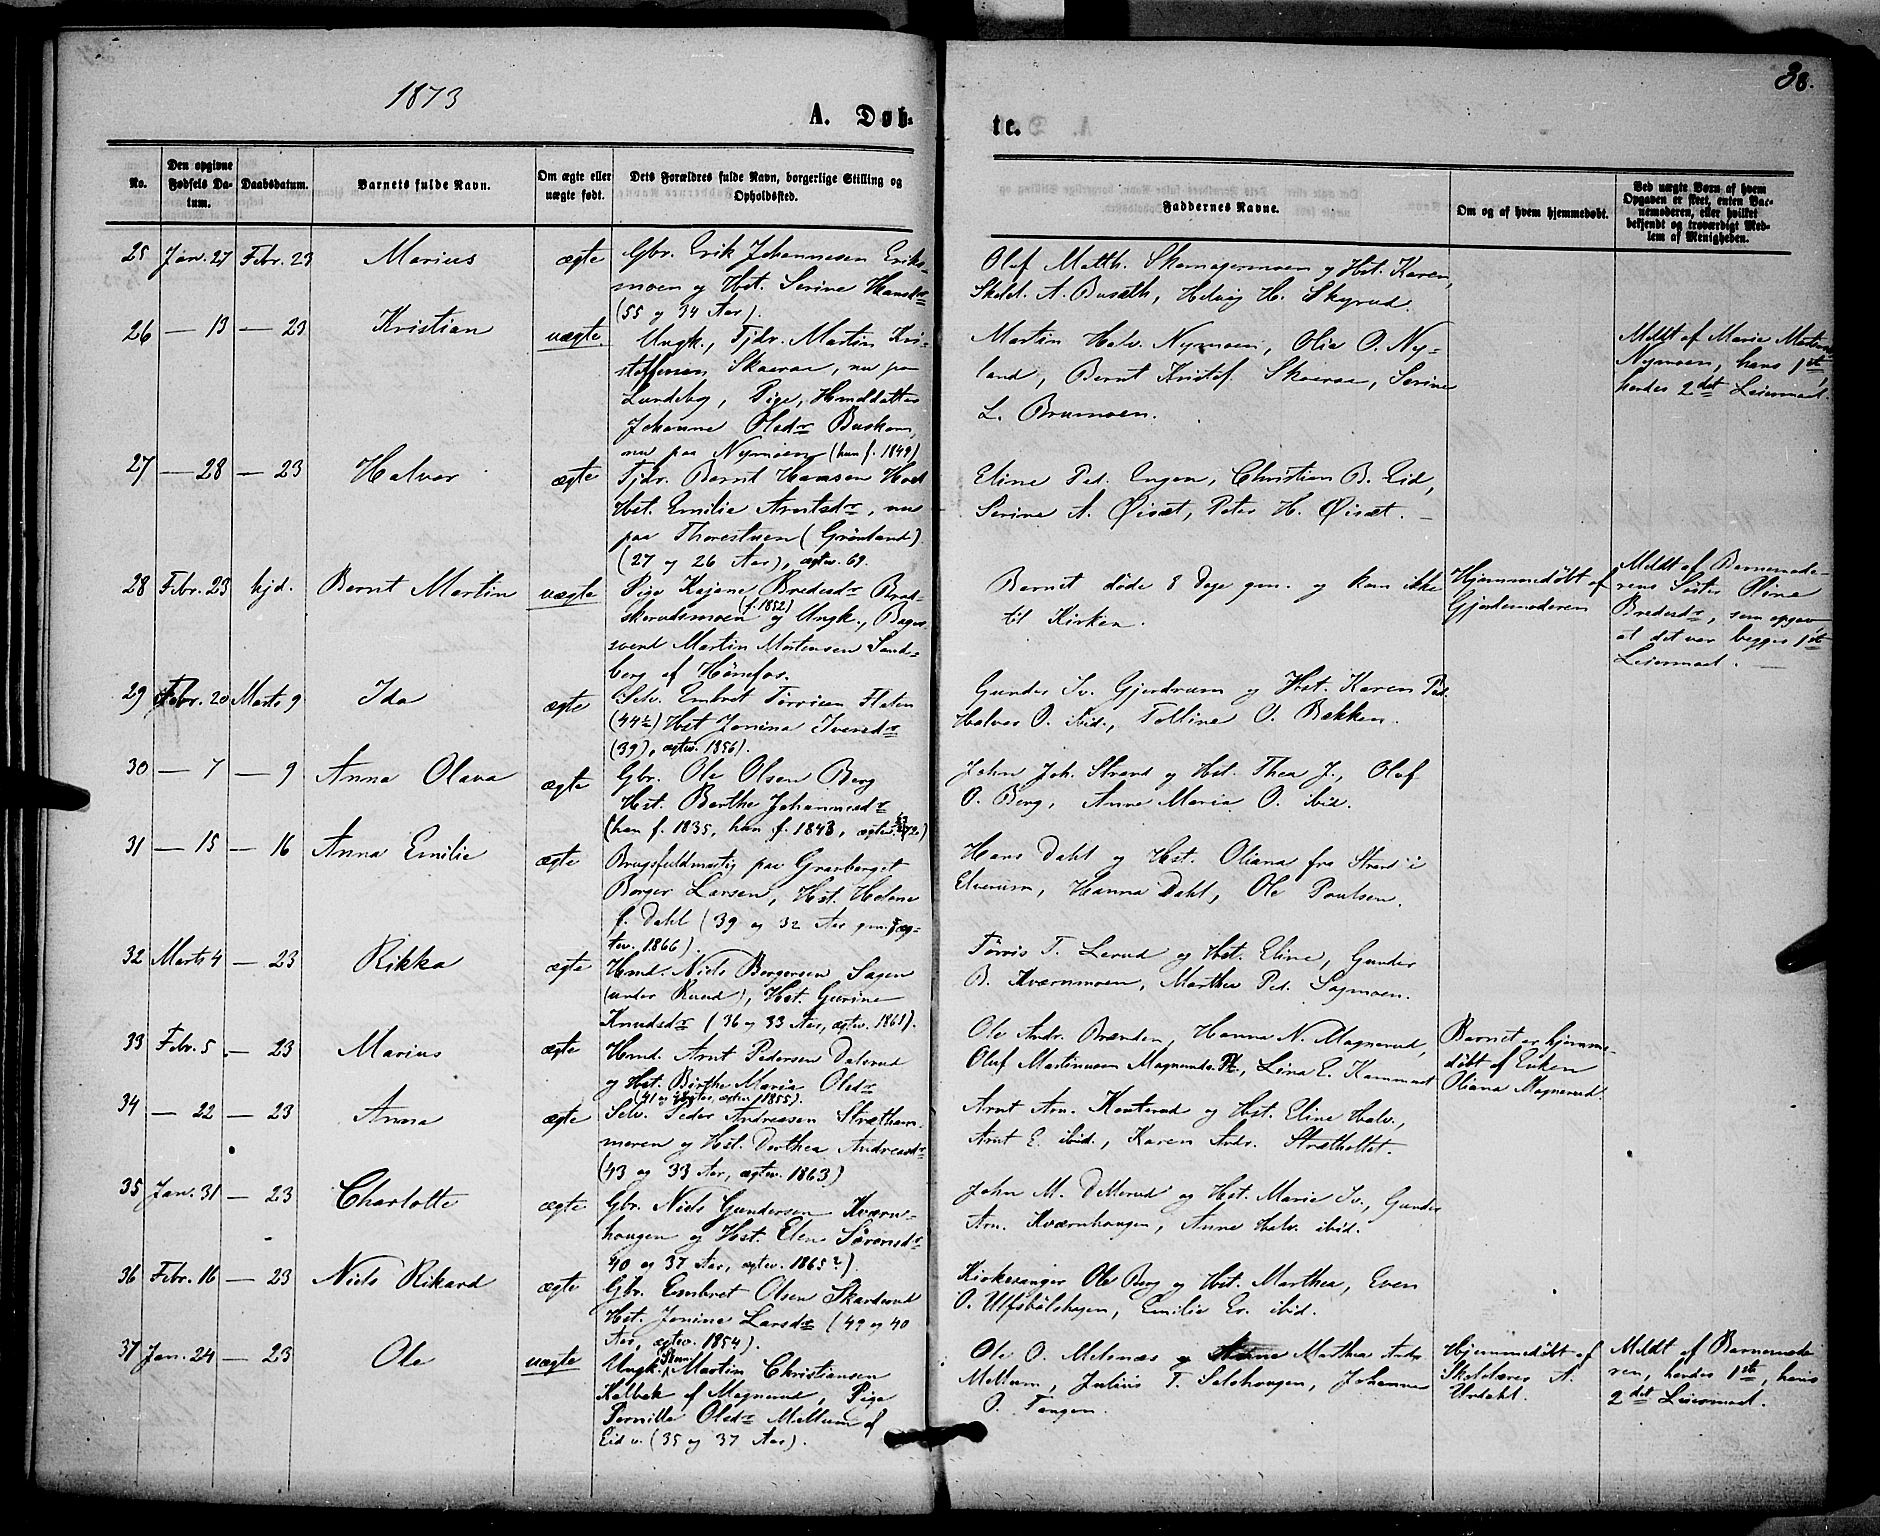 1873
38.
A. Døb-
te.
No.
Den opgivne Fødsels Da-tum.
Daabsdatum.
Barnets fulde Navn.
Om ægte eller uægte født.
Dets Forældres fulde Navn, borgerlige Stilling og Opholdssted.
Faddernes Navne.
Om og af hvem hjemmedøbt.
Ved uægte Børn af hvem Opgaven er skeet, enten Bar-nemoderen, eller hvilket bekjendt og troværdigt Med-lem af Menigheden.
25 Jan. 27 Febr. 23 Marius ægte Gbr. Erik Johannesen Eriks-
moen og Hst. Serine Hansdr
(55 og 34 Aar).
Olaf Matth. Skamagermoen og Hst. Karen,
A. Busæth, Helvig H. Skyrud.
26 — 13 — 23 Kristian uægte Ungk., Tjdr. Martin Kri-
stoffersen Skaeraa, nu paa
Lundeby, Pige, Hmddatter
Johanne Olsdr Buskom,
nu paa Nymoen (han f. 1849)
Martin Halv. Nymoen, Olia O. Ny-
land, Bernt Kristof. Skaeraa, Serine
L. Brumoen.
Meldt af Marie
Nymoen, hans 1ste
hendes 2det Leiermaal.
27 — 28 — 23 Halvor ægte Tjdr. Bernt Hansen
Hst. Emilie Arntsdr, nu
paa Thorestuen (Grønland)
(27 og 26 Aar), ægtev. 69.
Eline Ped. Engen, Christian B. Eid,
Serine A. Øisæt, Peter H. Øisæt. —
28 Febr. 23 hjd. Bernt Martin uægte Pige Kajane Bredesdr Brad-
skerudsmoen (f. 1852) og Ungk., Bager-
svend Martin Mortensen Sand-
berg af Hønefos.
Barnet døde 8 Dage gm. og kom ikke
til Kirken.
Hjemmedøbt af
Gjordemoderen
Meldt af Barnemode-
rens Søster Oline
Bredesdr, som opgav
at det var begges 1ste
Leiermaal. —
29 Febr. 20 Marts 9 Ida ægte Selv. Embret Tørrisen Flaten
(44½) Hst Jonina Iversdr
(39), ægtev. 1856).
Gunder Iv. Gjerdrum og Hst. Karen Ped.
Halvor O. ibid., Tolline O. Bakken.
30 — 7 — 9 Anna Olava ægte Gbr. Ole Olsen Berg
Hst. Berthe Johannesdr
(han f. 1835, hun f. 1843, ægtev. 72.)
John Joh. Strand og Hst. Thea J., Olaf
O. Berg, Anne Maria O. ibid.
31 — 15 — 16 Anna Emilie ægte Brugsfuldmægtig paa Gravberget
Borger Larsen, Hst. Helene
f. Dahl (39 og 32 Aar gm., æg-
tev. 1866).
Hans Dahl og Hst. Oliana fra Strand i
Elverum, Hanna Dahl, Ole Poulsen.
32 Marts 4 — 23 Rikka ægte Hmd. Niels Borgersen Sagen
(under Ruud), Hst. Gurine
Knudsdr (36 og 33 Aar, ægtev. 1861).
Tørris T. Lerud og Hst. Eline, Gunder
B. Kværnmoen, Marthea Ped. Sagmoen.
33 Febr. 5 — 23 Marius ægte Hmd. Arnt Pedersen Dalerud
og Hst. Birthe Maria Olsdr
(41 og Aar, ægtev. 1855).
Ole Andr. Brænden, Hanna N. Magnerud,
Oluf Martinusen Magneruds Pl., Lina E. Kammad
Barnet er hjemme-
døbt af Enken
Oliana Magnerud.
34 — 22 — 23 Anna ægte Selv. Peder Andreasen Strætham-
meren og Hst. Dorthea Andreasdr
(43 og 33 Aar, ægtev. 1863)
Arnt Arn. Kouterud og Hst. Eline Halv.,
Arnt E. ibid., Karen Andr. Stræthollet.
35 Jan. 31 — 23 Charlotte ægte Gbr. Niels Gundersen Kværn-
hougen og Hst. Elen Sørensdr
40 og 37 Aar, ægtev. 1865?).
John M. Dellerud og Hst. Marie Iv., Gunder
Arn. Kværnhougen, Anne Halv. ibid.
36 Febr. 16 — 23 Niels Rikard ægte Gbr. Embret Olsen Skarderud
Hst. Jonine Larsdr (49 og 40
Aar, ægtev. 1854).
Kirkesanger Ole Berg og Hst. Marthea, Even
O. Ulfsbølshagen, Emilie Ev. ibid.
37 Jan. 24 — 23 Ole uægte Ungk. Martin Christiansen
Kolbek af Magnerud, Pige
Pernille Olsdr Mellum af
Eid v. (35 og 37 Aar).
Ole O. Melsnæs og Marthea Andr
Mellum, Julius T. Salshougen, Johanne
O. Tangen.
Hjemmedøbt af
Skolelærer A.
Urdahl.
Meldt af Barnemode-
ren, hendes 1ste, hans
2det Leiermaal.